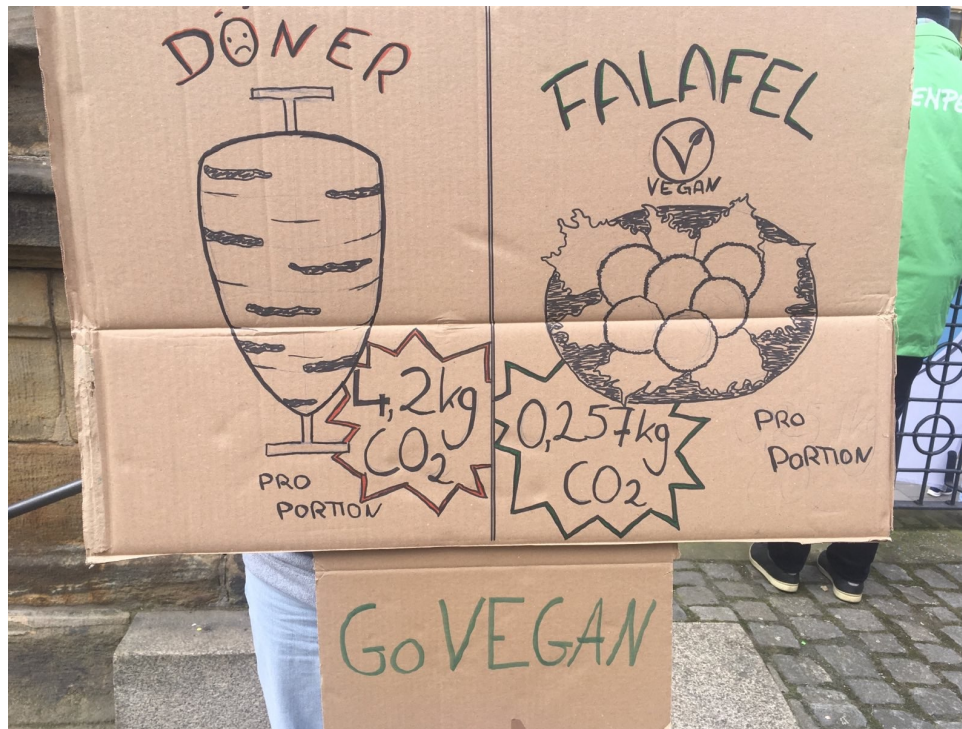 DÖNER
4,2kg
CO2
PRO
PORTION
FALAFEL
VEGAN
0,257kg
CO2
PRO
PORTION
GO VEGAN